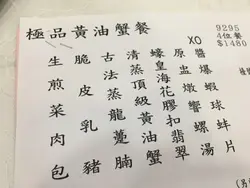 極品黃油蟹餐
9295
4位餐
$1480
XO醬爆蝦球蚌片
原盅燉響螺湯
蠔皇花膠扣翡翠
清蒸頂級黃油蟹
古法蒸龍躉腩
脆皮乳豬
生煎菜肉包